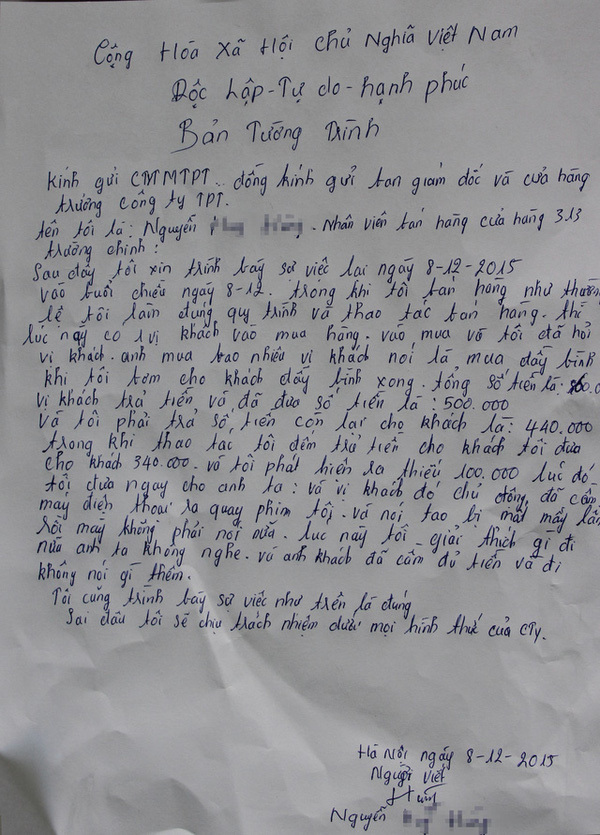 Cộng Hóa Xã Hội Chủ Nghĩa Việt Nam
Độc Lập-Tự do-hạnh phúc
Bản Tường Trình
Kính gửi CTTMTPT.. đồng kính gửi ban giám đốc và cửa hàng
trưởng công ty TPT.
tên tôi là: Nguyễn. Nhân viên bán hàng cửa hàng 313
trường chinh:
Sau đây tôi xin trình bày sự việc lại ngày 8-12-2015
Vào buổi chiều ngày 8-12. trong khi tôi bán hàng như thường
lệ tôi làm đúng quy trình và thao tác bán hàng. thì
lúc này có 1 vị khách vào mua hàng. vào mua và tôi đã hỏi
vị khách. anh mua bao nhiêu vị khách nói là mua đầy bình
khi tôi bơm cho khách đầy bình xong. tổng số tiền là: 60.0
vị khách trả tiền và đã đưa số tiền là: 500.000
Và tôi phải trả số tiền còn lại cho khách là: 440.000
trong khi thao tác tôi đếm trả tiền cho khách tôi đưa
cho khách 340.000. và tôi phát hiện ra thiếu 100.000 lúc đó
tôi đưa ngay cho anh ta: và vị khách đó chủ động, đã cầm
máy điện thoại ra quay phim tôi. và nói tao bị mất mấy lần
rồi mày không phải nói nữa. lúc này tôi giải thích gì đi
nữa anh ta không nghe. và anh khách đã cầm đủ tiền và đi
không nói gì thêm.
Tôi cũng trình bày sự việc như trên là đúng
Sai đâu tôi sẽ chịu trách nhiệm dưới mọi hình thức của CTy.
Hà Nội ngày 8-12-2015
Người viết
Nguyễn